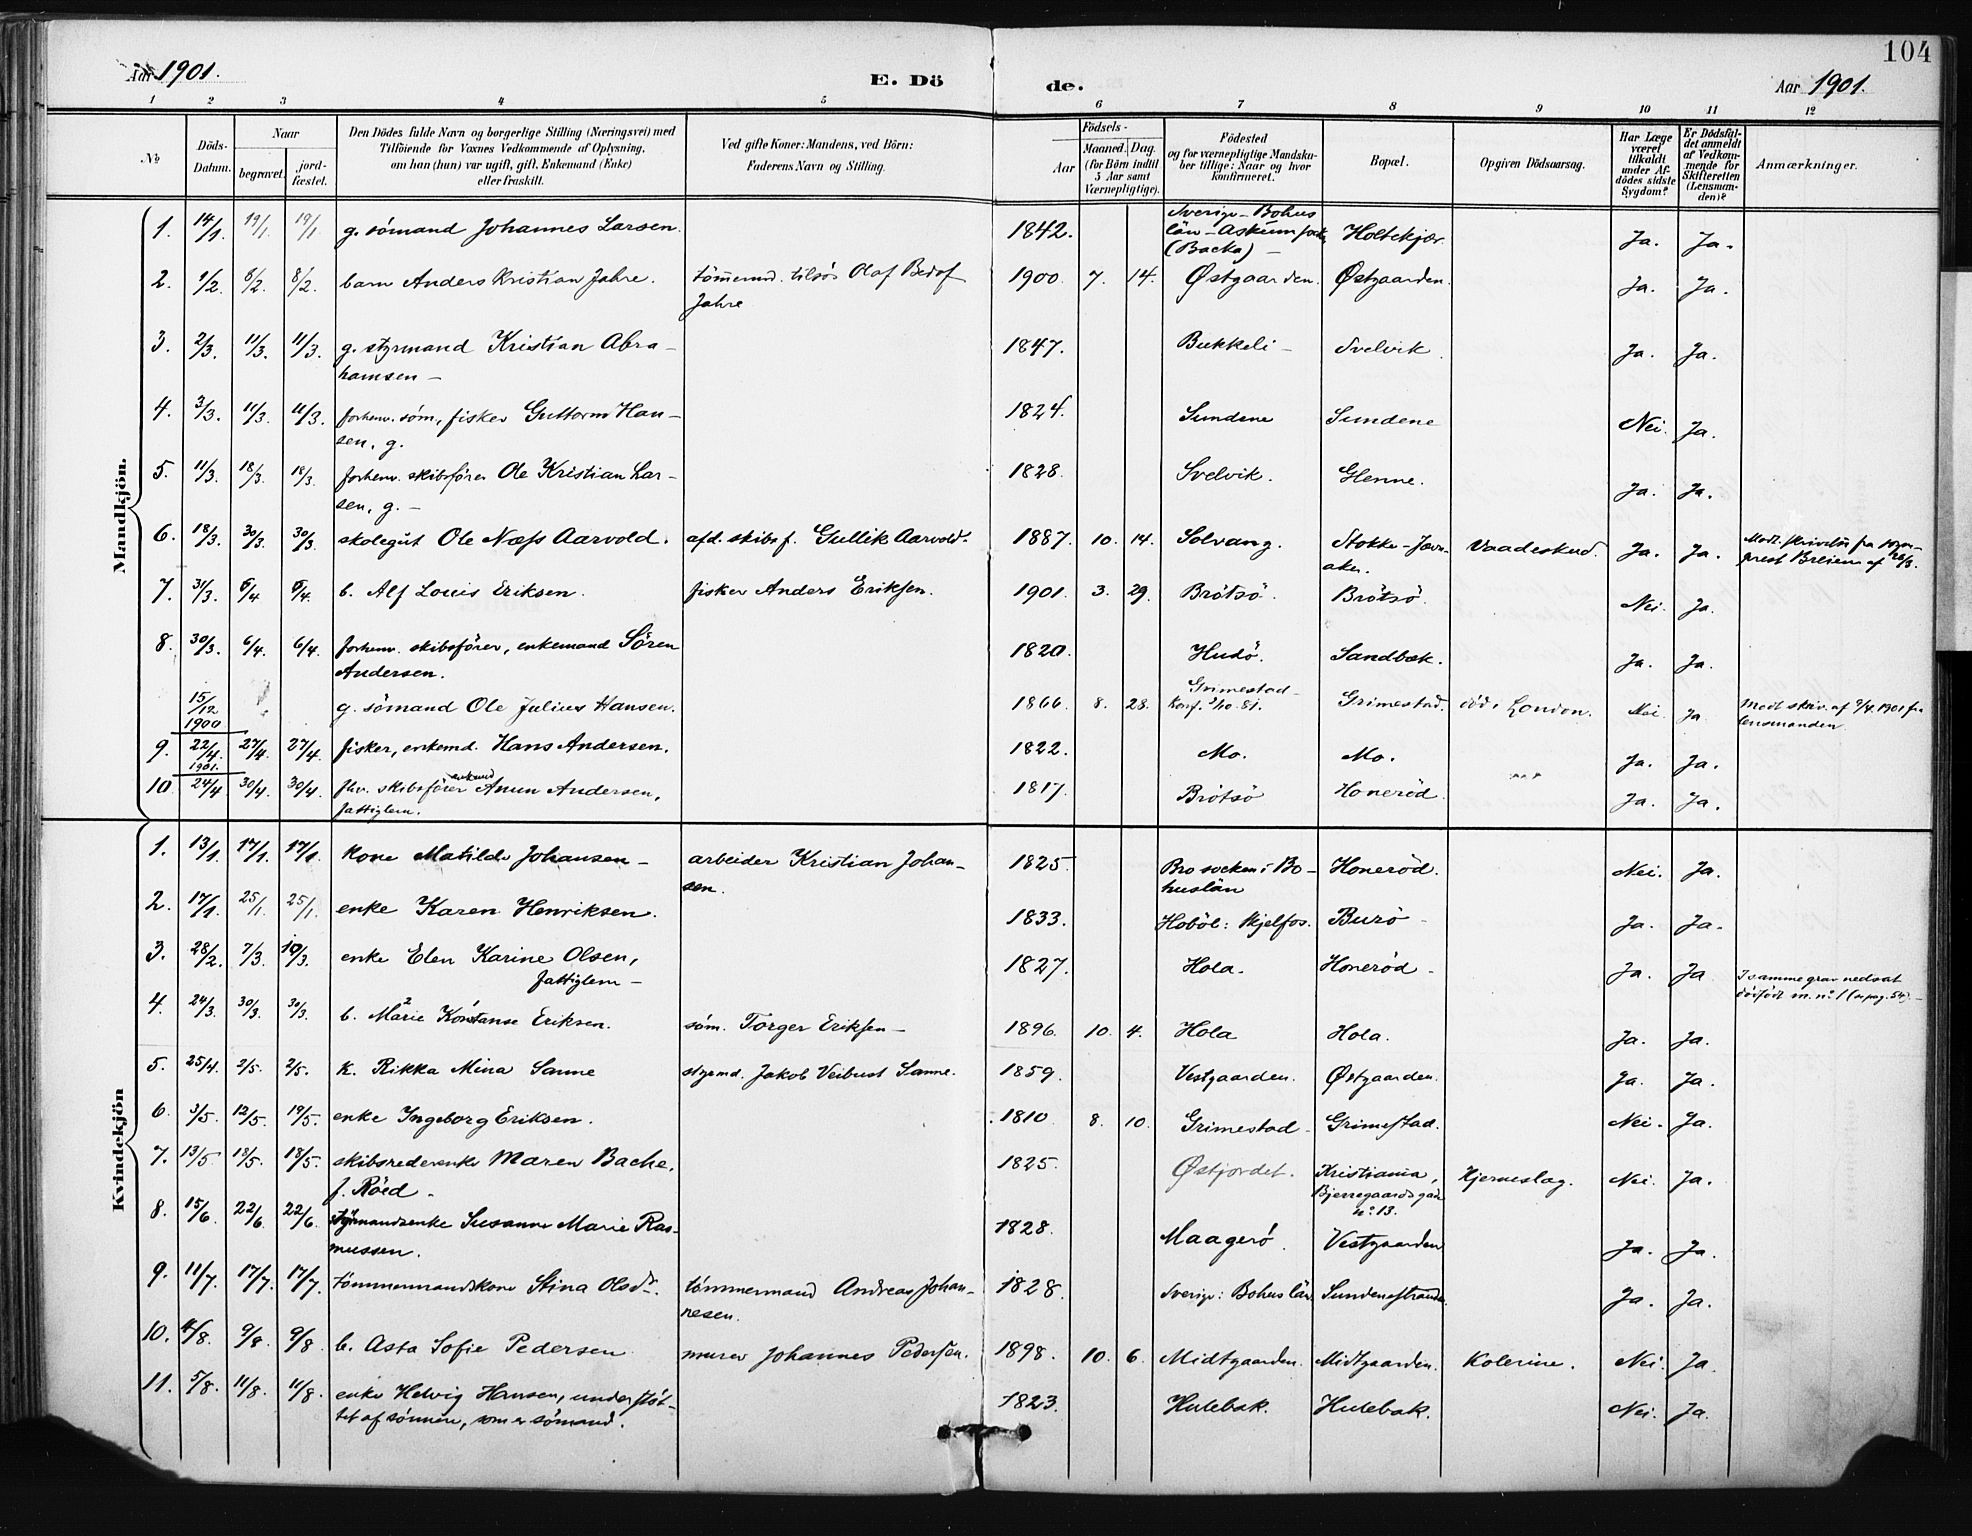 104
Aar 1901. E. Dö de. Aar 1901.
1 2 3 4 5 6 7 8 9 10 11 12
No
Döds-Datum.
Naar
begravet.
jordfæstet.
Den Dödes fulde Navn og borgerlige Stilling (Næringsvei) med
Tilföiende for Voxnes Vedkommende af Oplysning,
om han (hun) var ugift, gift, Enkemand (Enke)
eller fraskilt.
Ved gifte Koner: Mandens, ved Börn:
Faderens Navn og Stilling.
Födsels-
Aar
Maaned. Dag.
(for Börn indtil
5 Aar samt
Værnepligtige).
Födested
og for værnepligtige Mandskaber tillige: Naar og hvor
konfirmeret.
Bopæl.
Opgiven Dödsaarsag.
Har Læge
været
tilkaldt
under Afdödes sidste
Sygdom?
Er Dödsfaldet anmeldt
af Vedkommende for
Skifteretten
(Lensmanden)?
Anmærkninger.
Mandkjön.
1. 14/1. 19/1. 19/1. g. sömand Johannes Larsen. 1842. Sverige – Bohus
län – Askum (Backa) – Holtekjær. Ja. Ja.
2. 1/2. 6/2. 8/2. barn Anders Kristian Jahre. tömmermd. tilsös Olaf
Jahre 1900 7. 14. Østgaarden. Østgaarden. Ja. Ja.
3. 2/3. 11/3. 11/3. g. styrmand Kristian Abra-
hamsen – 1847. Bukkeli – Svelvik. Ja. Ja.
4. 3/3. 11/3. 11/3. forhenv. söm, fisker Guttorm Han-
sen, g. 1824. Sundene Sundene Nei. Ja.
5. 11/3. 18/3. 18/3. forhenv. skibsförer Ole Kristian Lar-
sen, g. – 1828. Svelvik. Glenne. Ja. Ja.
6. 18/3. 30/3. 30/3. skolegut Ole Næss Aarvold. afd. skibsf. Gullik Aarvold. 1887. 10. 14. Solvang. Stokke – Jævn-
aker. Vaadeskud. Ja. Ja. Modt. skrivelse fra sogne-
prest af 26/3.
7. 31/3. 6/4. 6/4. b. Alf Louis Eriksen. fisker Anders Eriksen. 1901. 3. 29. Brötsö. Brötsö. Nei. Ja.
8. 30/3. 6/4. 6/4. forhenv. skibsförer, enkemand Sören
Andersen. 1820. Hudö. Sandbæk. Ja. Ja.
15/12 1900 g. sömand Ole Julius Hansen. 1866 8. 28. Grimestad –
Konf. 2/10. 81. Grimestad. död i London. Nei. Ja Modt skriv. af 9/4. 1901 fra
lensmanden
9. 22/4. 1901. 27/4. 27/4. fisker, enkemd. Hans Andersen. 1822. Mo. Mo. Ja. Ja.
10. 24/4 30/4. 30/4. fhv. skibsförer enkemd Anun Andersen,
fattiglem. 1817. Brötsö Honeröd. Ja. Ja.
Kvindekjön
1. 13/1. 17/1. 17/1. kone Matilde Johansen – arbeider Kristian Johan-
sen. 1825 Bro socken i Bo-
huslän Honeröd. Nei. Ja.
2. 17/1. 25/1. 25/1. enke Karen Henriksen. 1833. Hoböl: Kjelfos. Burö – Ja. Ja.
3. 28/2. 7/3. 10/3. enke Elen Karine Olsen,
fattiglem – 1827. Hola. Honeröd – Ja. Ja I samme grav nedsat
dödfödt m. no 1 (se pag. 54). –
4. 24/3. 30/3. 30/3. b. Marie 2 Konstanse 1 Eriksen. söm. Torger Eriksen – 1896. 10. 4. Hola Hola. Ja. Ja.
5. 25/4. 2/5. 2/5. k. Rikka Mina Sanne styrmd. Jakob Veibust Sanne. 1859. Vestgaarden. Østgaarden. Ja. Ja.
6. 3/5. 12/5. 19/5. enke Ingeborg Eriksen. 1810 8. 10. Grimestad – Grimestad. Nei. Ja.
7. 13/5. 18/5. 18/5. skibsrederenke Maren Bache,
f. Röed – 1825. Østjordet. Kristiania,
Bjerregaards gade
no 13. Hjerneslag. Nei. Ja.
8. 15/6. 22/6. 22/6. styrmandsenke Susanne Marie Ras-
mussen. 1828. Maagerö Vestgaarden Ja. Ja.
9. 11/7. 17/7. 17/7. tömmermandskone Stina Olsdr. tömmermand Andreas Johan-
nesen. 1828. Sverige: Bohuslän Sundenestranden. Ja. Ja.
10. 4/8. 9/8. 9/8. b. Asta Sofie Pedersen murer Johannes Pedersen. 1898. 10. 6. Midtgaarden. Midtgaarden. Kolerine. Nei. Ja.
11. 5/8. 11/8. 11/8. enke Helvig Hansen, understöt-
tet af sönnen, som er sömand. 1823. Hulebak. Hulebak. Nei. Ja.